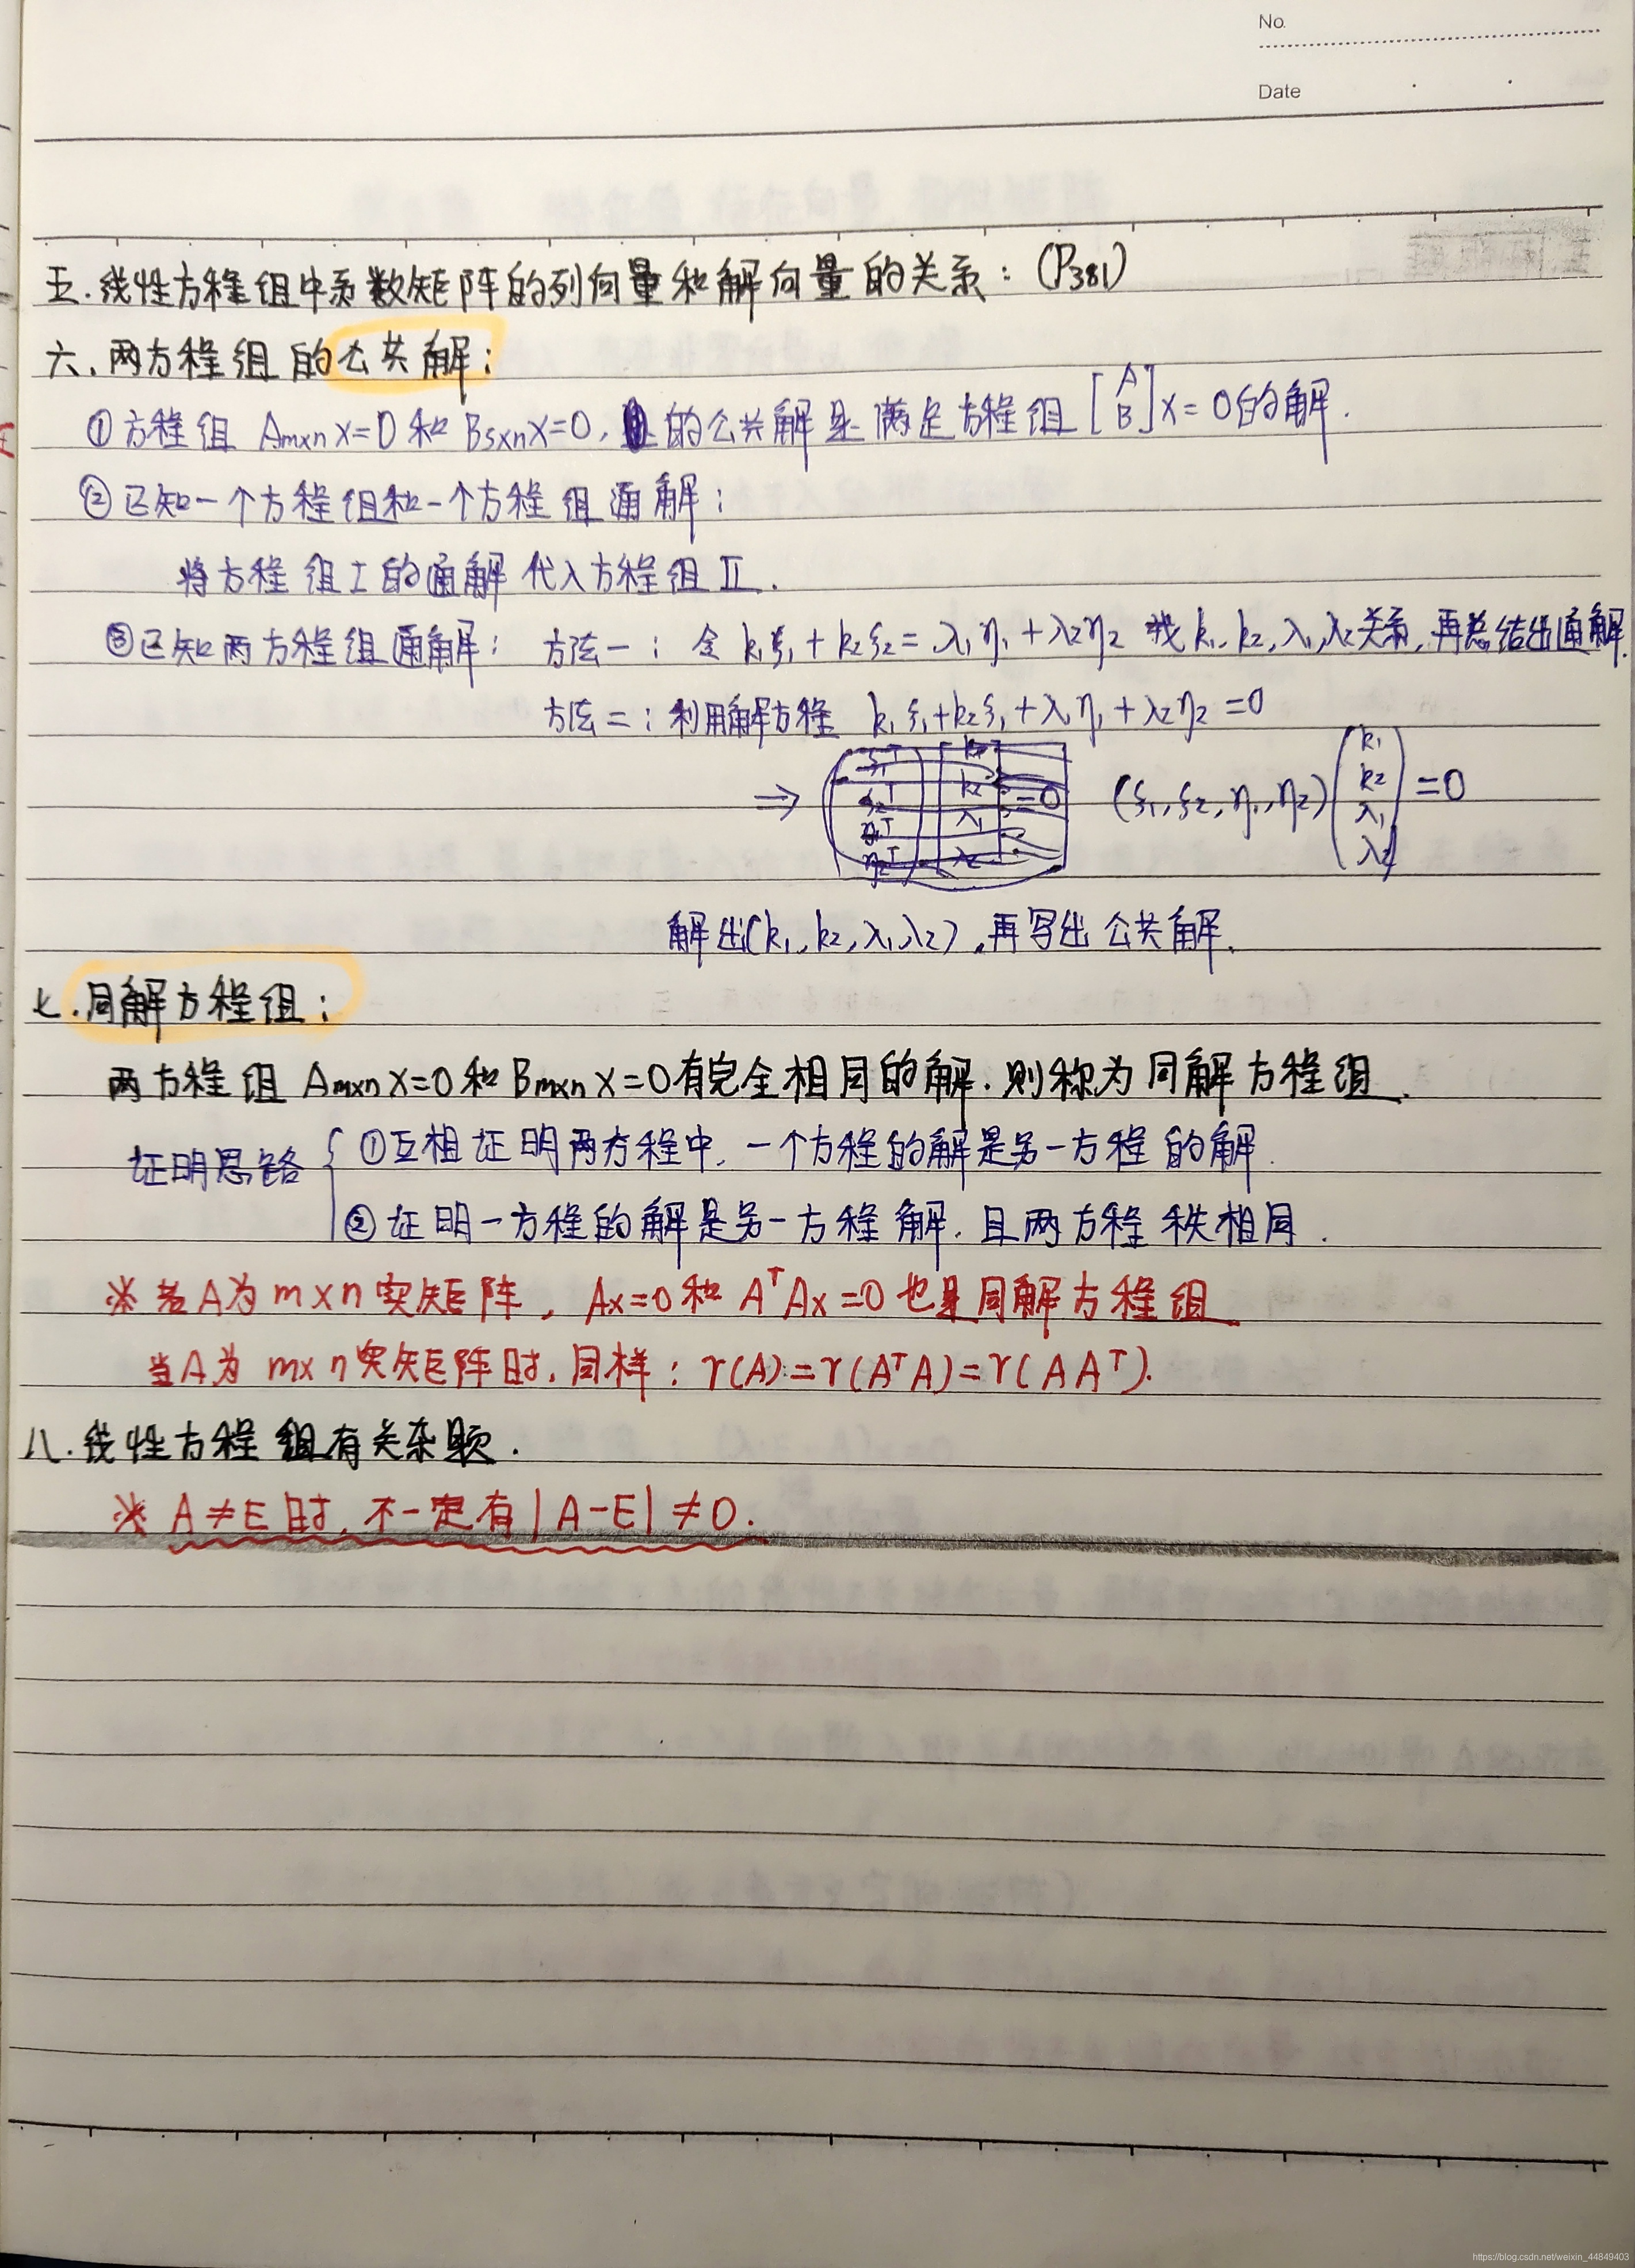 No.
Date
五.线性方程组中系数矩阵的列向量和解向量的关系：(P381)
六.两方程组的公共解：
①方程组 Am×n X=0 和 Bs×n X=0, 的公共解是满足方程组 [A B] X=0的解.
②已知一个方程组和一个方程组通解：
将方程组Ⅰ的通解代入方程组Ⅱ.
③已知两方程组通解： 方法一：令 k₁ξ₁+k₂ξ₂=λ₁η₁+λ₂η₂ 找k₁,k₂,λ₁,λ₂关系,再总结出通解.
方法二：利用解方程 k₁ξ₁+k₂ξ₁+λ₁η₁+λ₂η₂=0
⇒ (ξ₁,ξ₂,η₁,η₂) (k₁ k₂ λ₁ λ₂) =0
解出(k₁,k₂,λ₁,λ₂),再写出公共解.
七.同解方程组：
两方程组 Am×n X=0 和 Bm×n X=0有完全相同的解.则称为同解方程组.
证明思路 { ①互相证明两方程中,一个方程的解是另一方程的解.
②证明一方程的解是另一方程解.且两方程秩相同.
※若A为m×n实矩阵, Ax=0和 AᵀAx=0也是同解方程组.
当A为 m×n实矩阵时,同样：r(A)=r(AᵀA)=r(AAᵀ).
八.线性方程组有关杂题.
※ A≠E时,不一定有|A-E|≠0.
https://blog.csdn.net/weixin_44849403